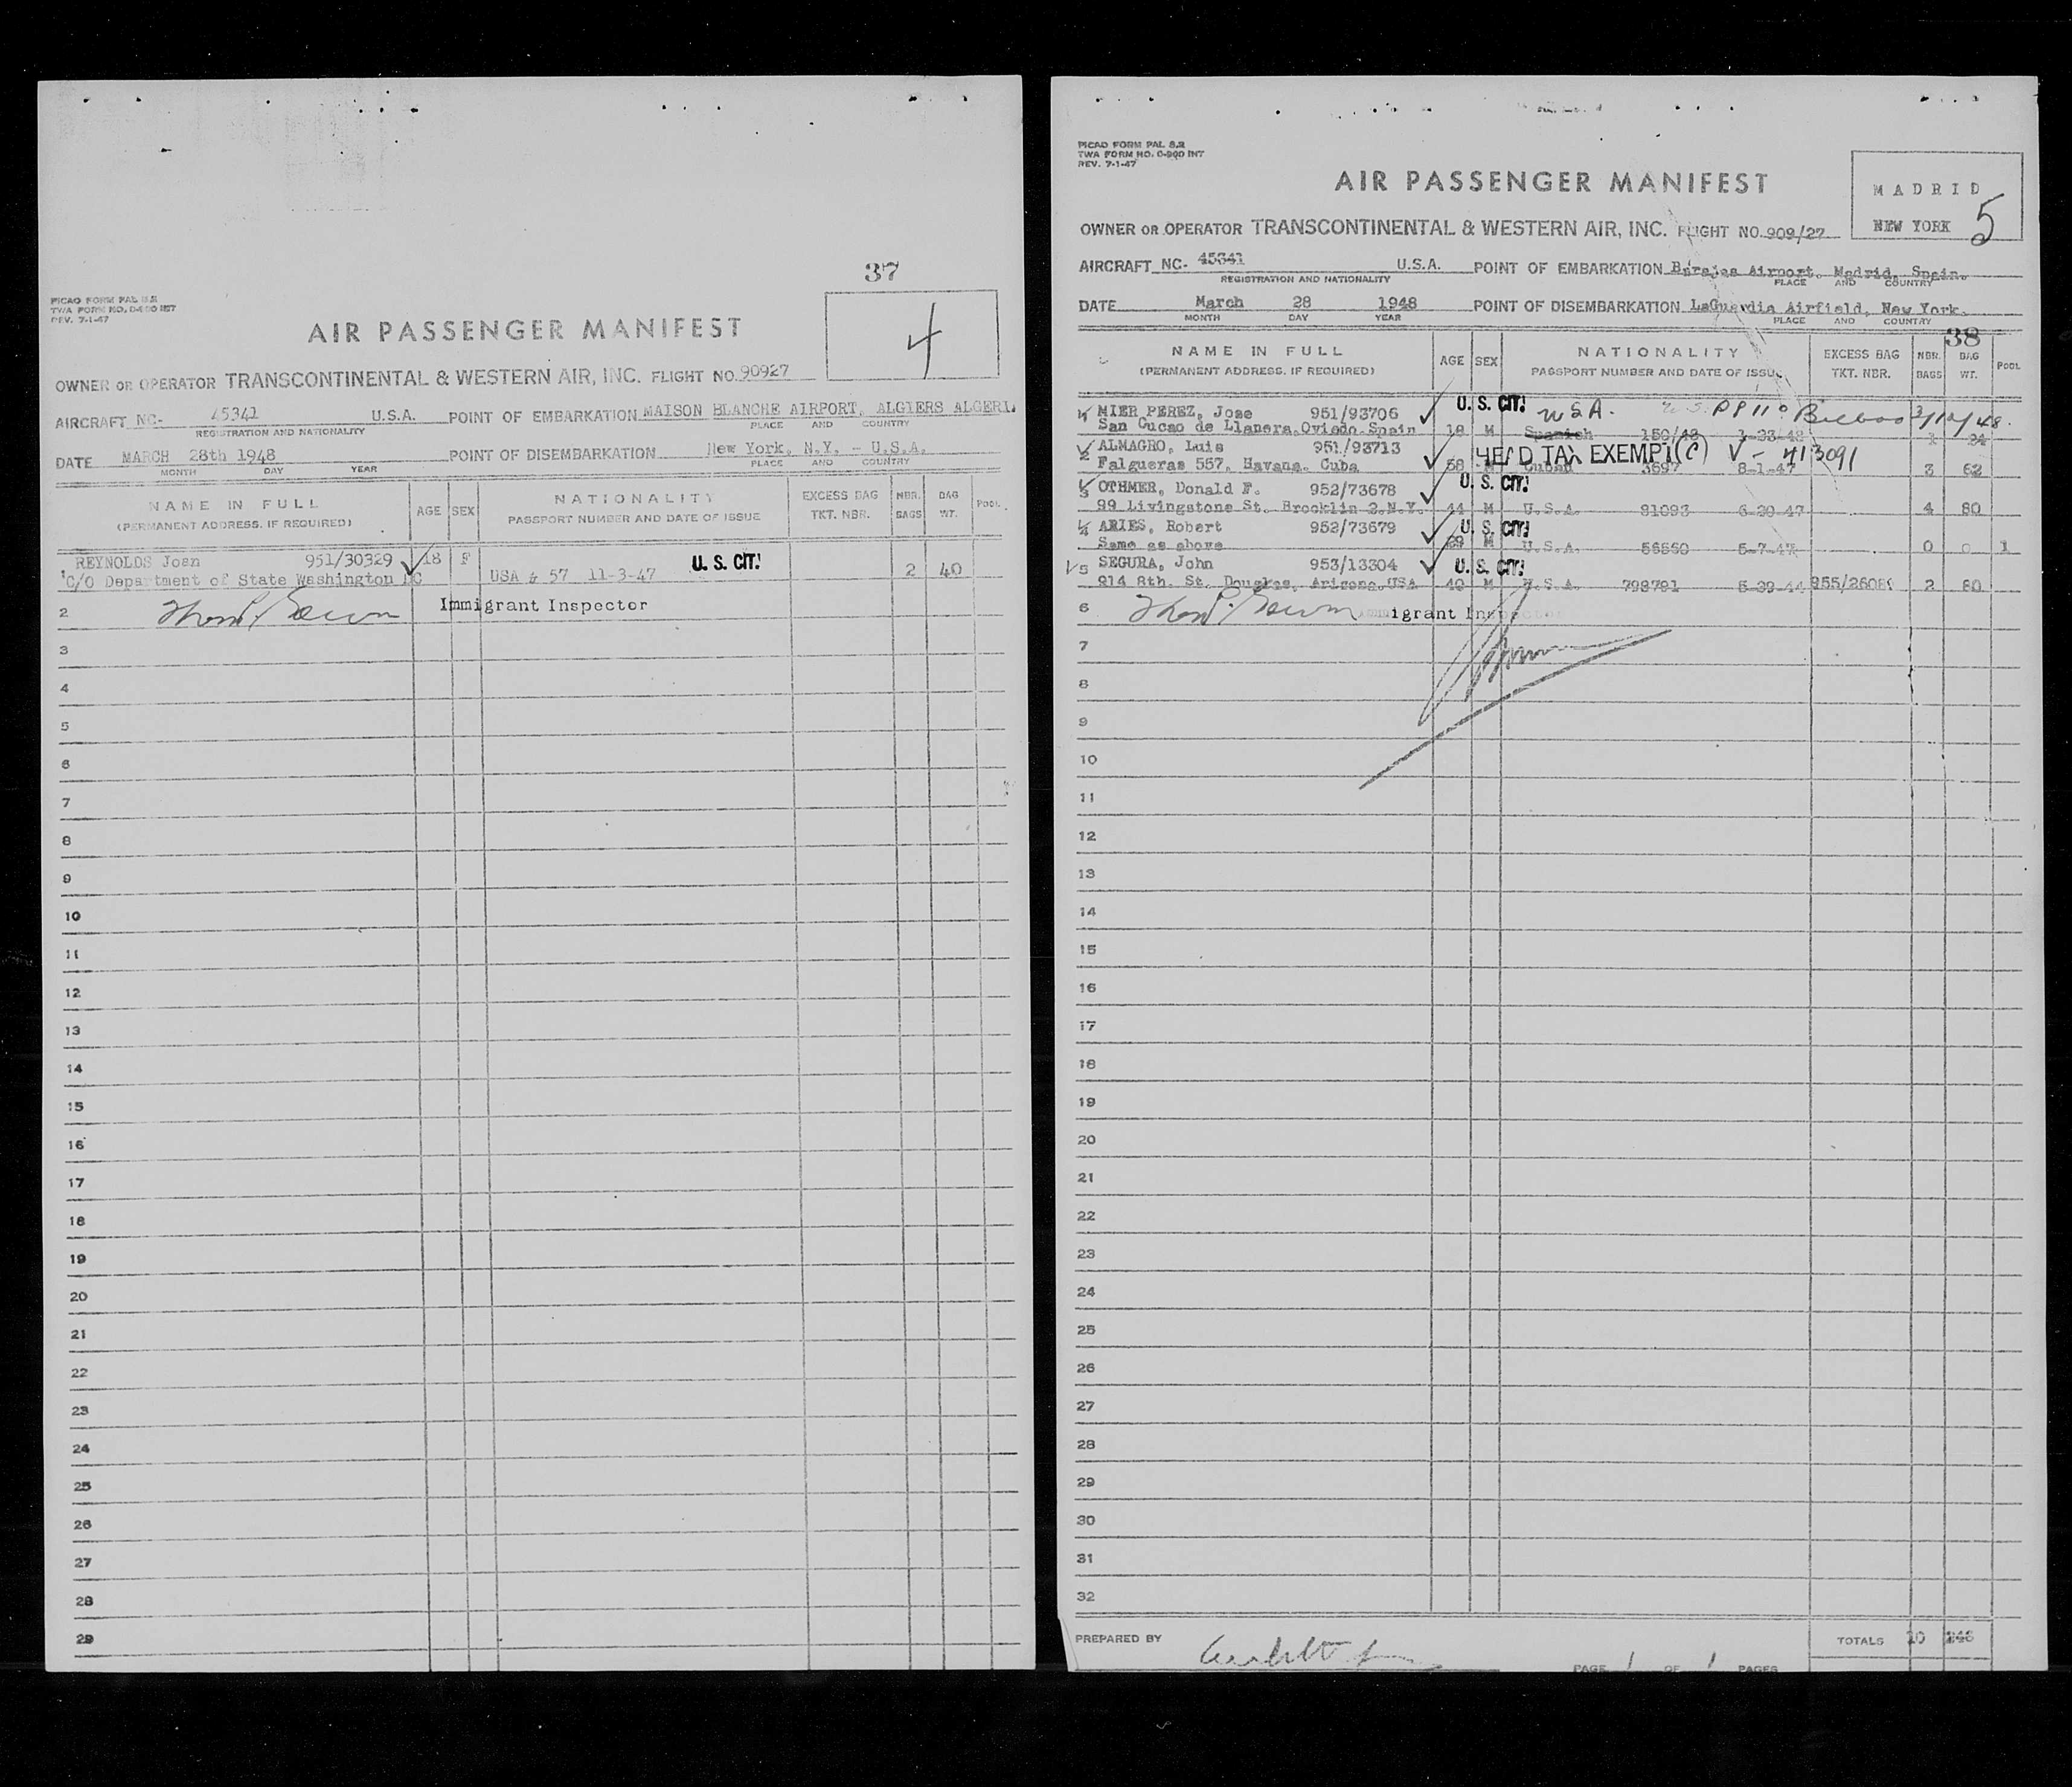 37
PICAO FORM PAL 8.2
TWA FORM NO. 0-900 INT
REV. 7-1-47
4
AIR PASSENGER MANIFEST
OWNER OR OPERATOR TRANSCONTINENTAL & WESTERN AIR, INC. FLIGHT NO. 90927
AIRCRAFT NC- 45341 U.S.A. POINT OF EMBARKATION MAISON BLANCHE AIRPORT, ALGIERS ALGERI
REGISTRATION AND NATIONALITY PLACE AND COUNTRY
DATE MARCH 28th 1948 POINT OF DISEMBARKATION New York, N.Y. - U.S.A.
MONTH DAY YEAR PLACE AND COUNTRY
NAME IN FULL AGE SEX NATIONALITY EXCESS BAG NBR. BAG POOL
(PERMANENT ADDRESS. IF REQUIRED) PASSPORT NUMBER AND DATE OF ISSUE TKT. NBR. BAGS WT.
REYNOLDS Joan 951/30329 18 F U. S. CIT!
C/O Department of State Washington DC USA & 57 11-3-47 2 40
2 Immigrant Inspector
3
4
5
6
7
8
9
10
11
12
13
14
15
16
17
18
19
20
21
22
23
24
25
26
27
28
29
PICAO FORM PAL 8.2
TWA FORM NO. 0-900 INT
REV. 7-1-47
AIR PASSENGER MANIFEST
MADRID
NEW YORK 5
OWNER OR OPERATOR TRANSCONTINENTAL & WESTERN AIR, INC. FLIGHT NO. 909/27
AIRCRAFT NC- 45341 U.S.A. POINT OF EMBARKATION Barajas Airport. Madrid, Spain.
REGISTRATION AND NATIONALITY PLACE AND COUNTRY
DATE March 28 1948 POINT OF DISEMBARKATION LaGuardia Airfield, New York.
MONTH DAY YEAR PLACE AND COUNTRY
38
NAME IN FULL AGE SEX NATIONALITY EXCESS BAG NBR. BAG POOL
(PERMANENT ADDRESS. IF REQUIRED) PASSPORT NUMBER AND DATE OF ISSUE TKT. NBR. BAGS WT.
MIER PEREZ, Jose 951/93706 U. S. CIT! USA. PP 110 Bilbao 3/12/48.
San Cucao de Llanera, Oviedo, Spain 18 M Spanish 150/48 1-23-48 1 24
2 ALMAGRO, Luis 951/93713 HEAD TAX EXEMPT (C) V - 413091
Falgueras 557, Havana. Cuba 58 M Cuban 3697 8-1-47 3 62
3 OTHMER, Donald F. 952/73678 U. S. CIT!
99 Livingstone St. Brocklin 2.N.Y. 44 M U.S.A. 81093 6-20-47 4 80
4 ARIES, Robert 952/73679 U. S. CIT!
Same as above 29 M U.S.A. 56560 5-7-47 0 0 1
5 SEGURA, John 953/13304 U. S. CIT!
914 8th. St. Douglas, Arizona.USA 40 M U.S.A. 798791 5-29-44 2 80
6 Immigrant Inspector
7
8
9
10
11
12
13
14
15
16
17
18
19
20
21
22
23
24
25
26
27
28
29
30
31
32
PREPARED BY TOTALS 10 246
PAGE 1 OF 1 PAGES